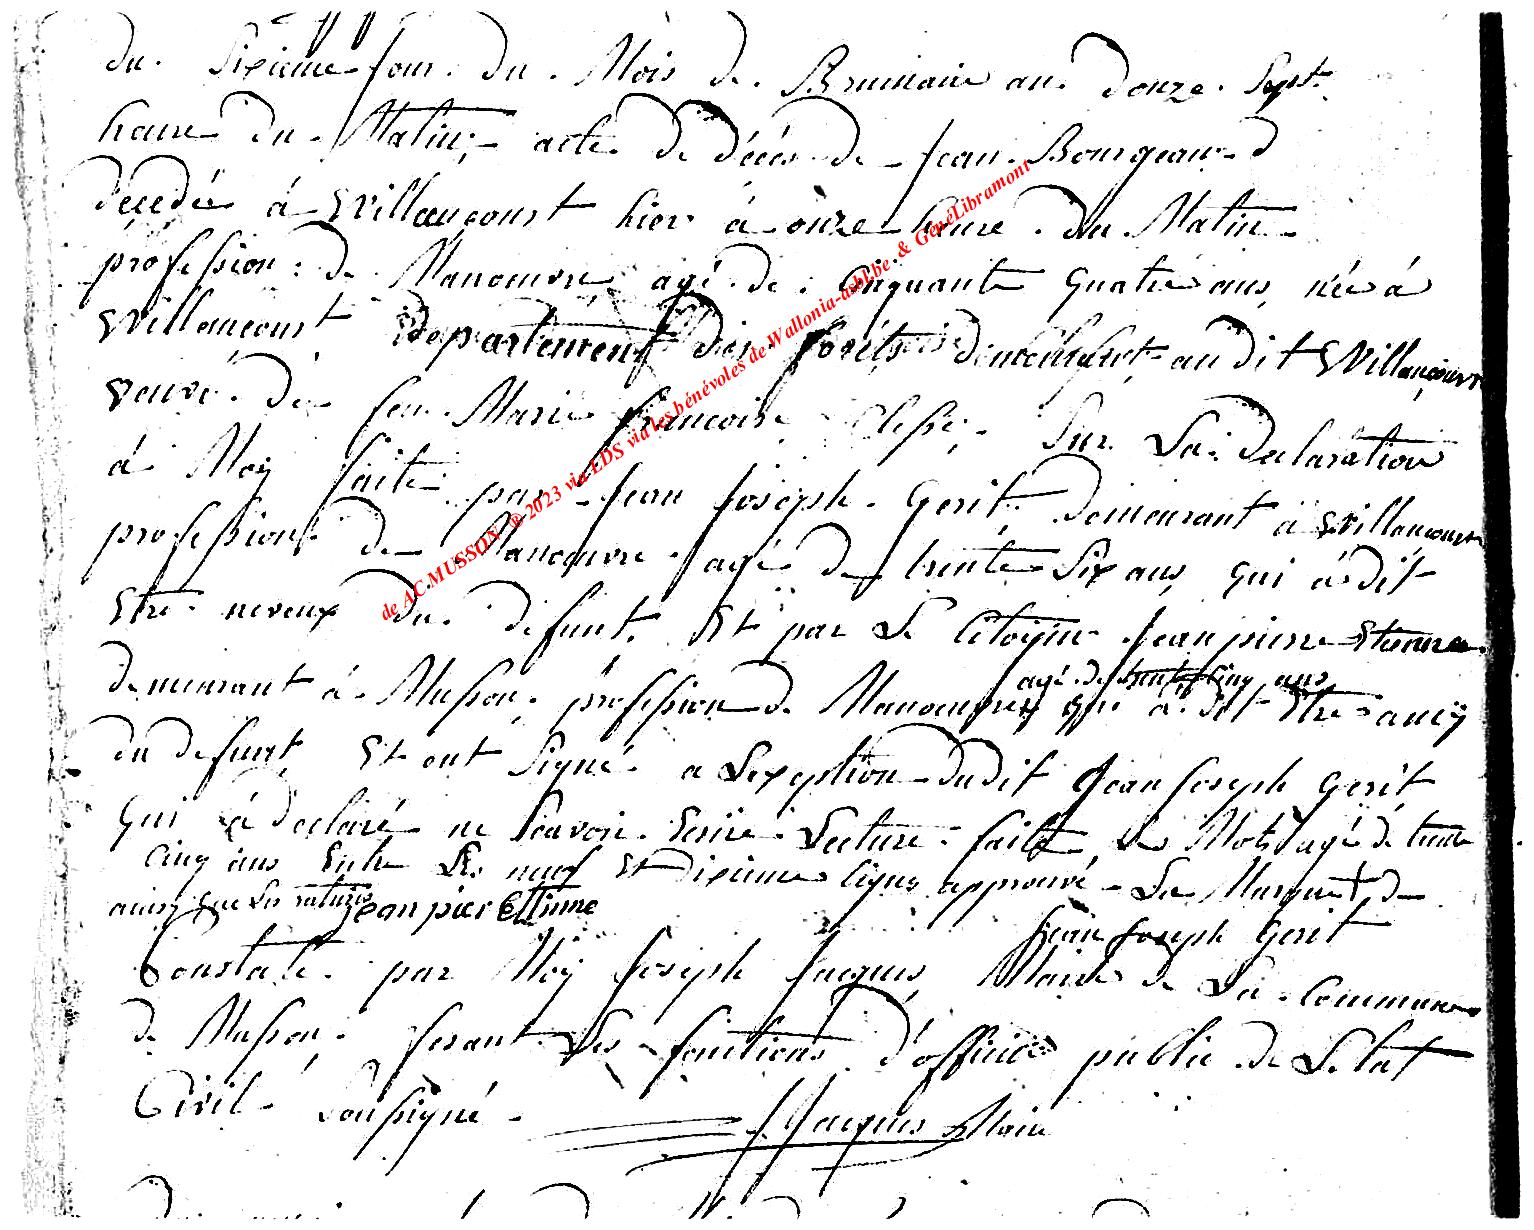 du Sixieme Jour du Mois de Brumaire an douze Sept
heure du Matin, acte de décés de Jean Bourgeau
décedée à Willancourt hier à onze heure du Matin
profession de Manoeuvre agé de Cinquante quatre ans, née à
Willancourt departement des forêts demeurant au dit Willancourt
veuve de feu Marie francoise Clesse, Sur La declaration
à Moÿ faite par Jean Joseph Gerit, demeurant à Willancourt
profession de Manoeuvre agé de trente Six ans, qui à dit
Etre neveux du defunt, Et par Le Citoÿin Jean pierre Etienne
agé de trente Cinq ans
demeurant à Musson, profession de Manoeuvre qui à dit Etre amÿ
du defunt, Et ont Signé a Lexeption du dit Jean Joseph Gerit,
qui à declaré ne Scavoir Ecrire Lecture faite, Le Mots agé de trente
Cinq ans Entre Les neuf Et Dixieme ligne approuvé La Marque + de
ainsy que Les ratures Jean pier Ettinne
Jean Joseph Gerit
Constaté par Moÿ Joseph Jacques, Maire de La Commune
de Musson, fesant Les fonctions d'officier public de Letat
Civil Soussigné
J Jacques Maire
de AC MUSSON ® 2023 via EDS via les bénévoles de Wallonia-asbl.be & GenéLibramont